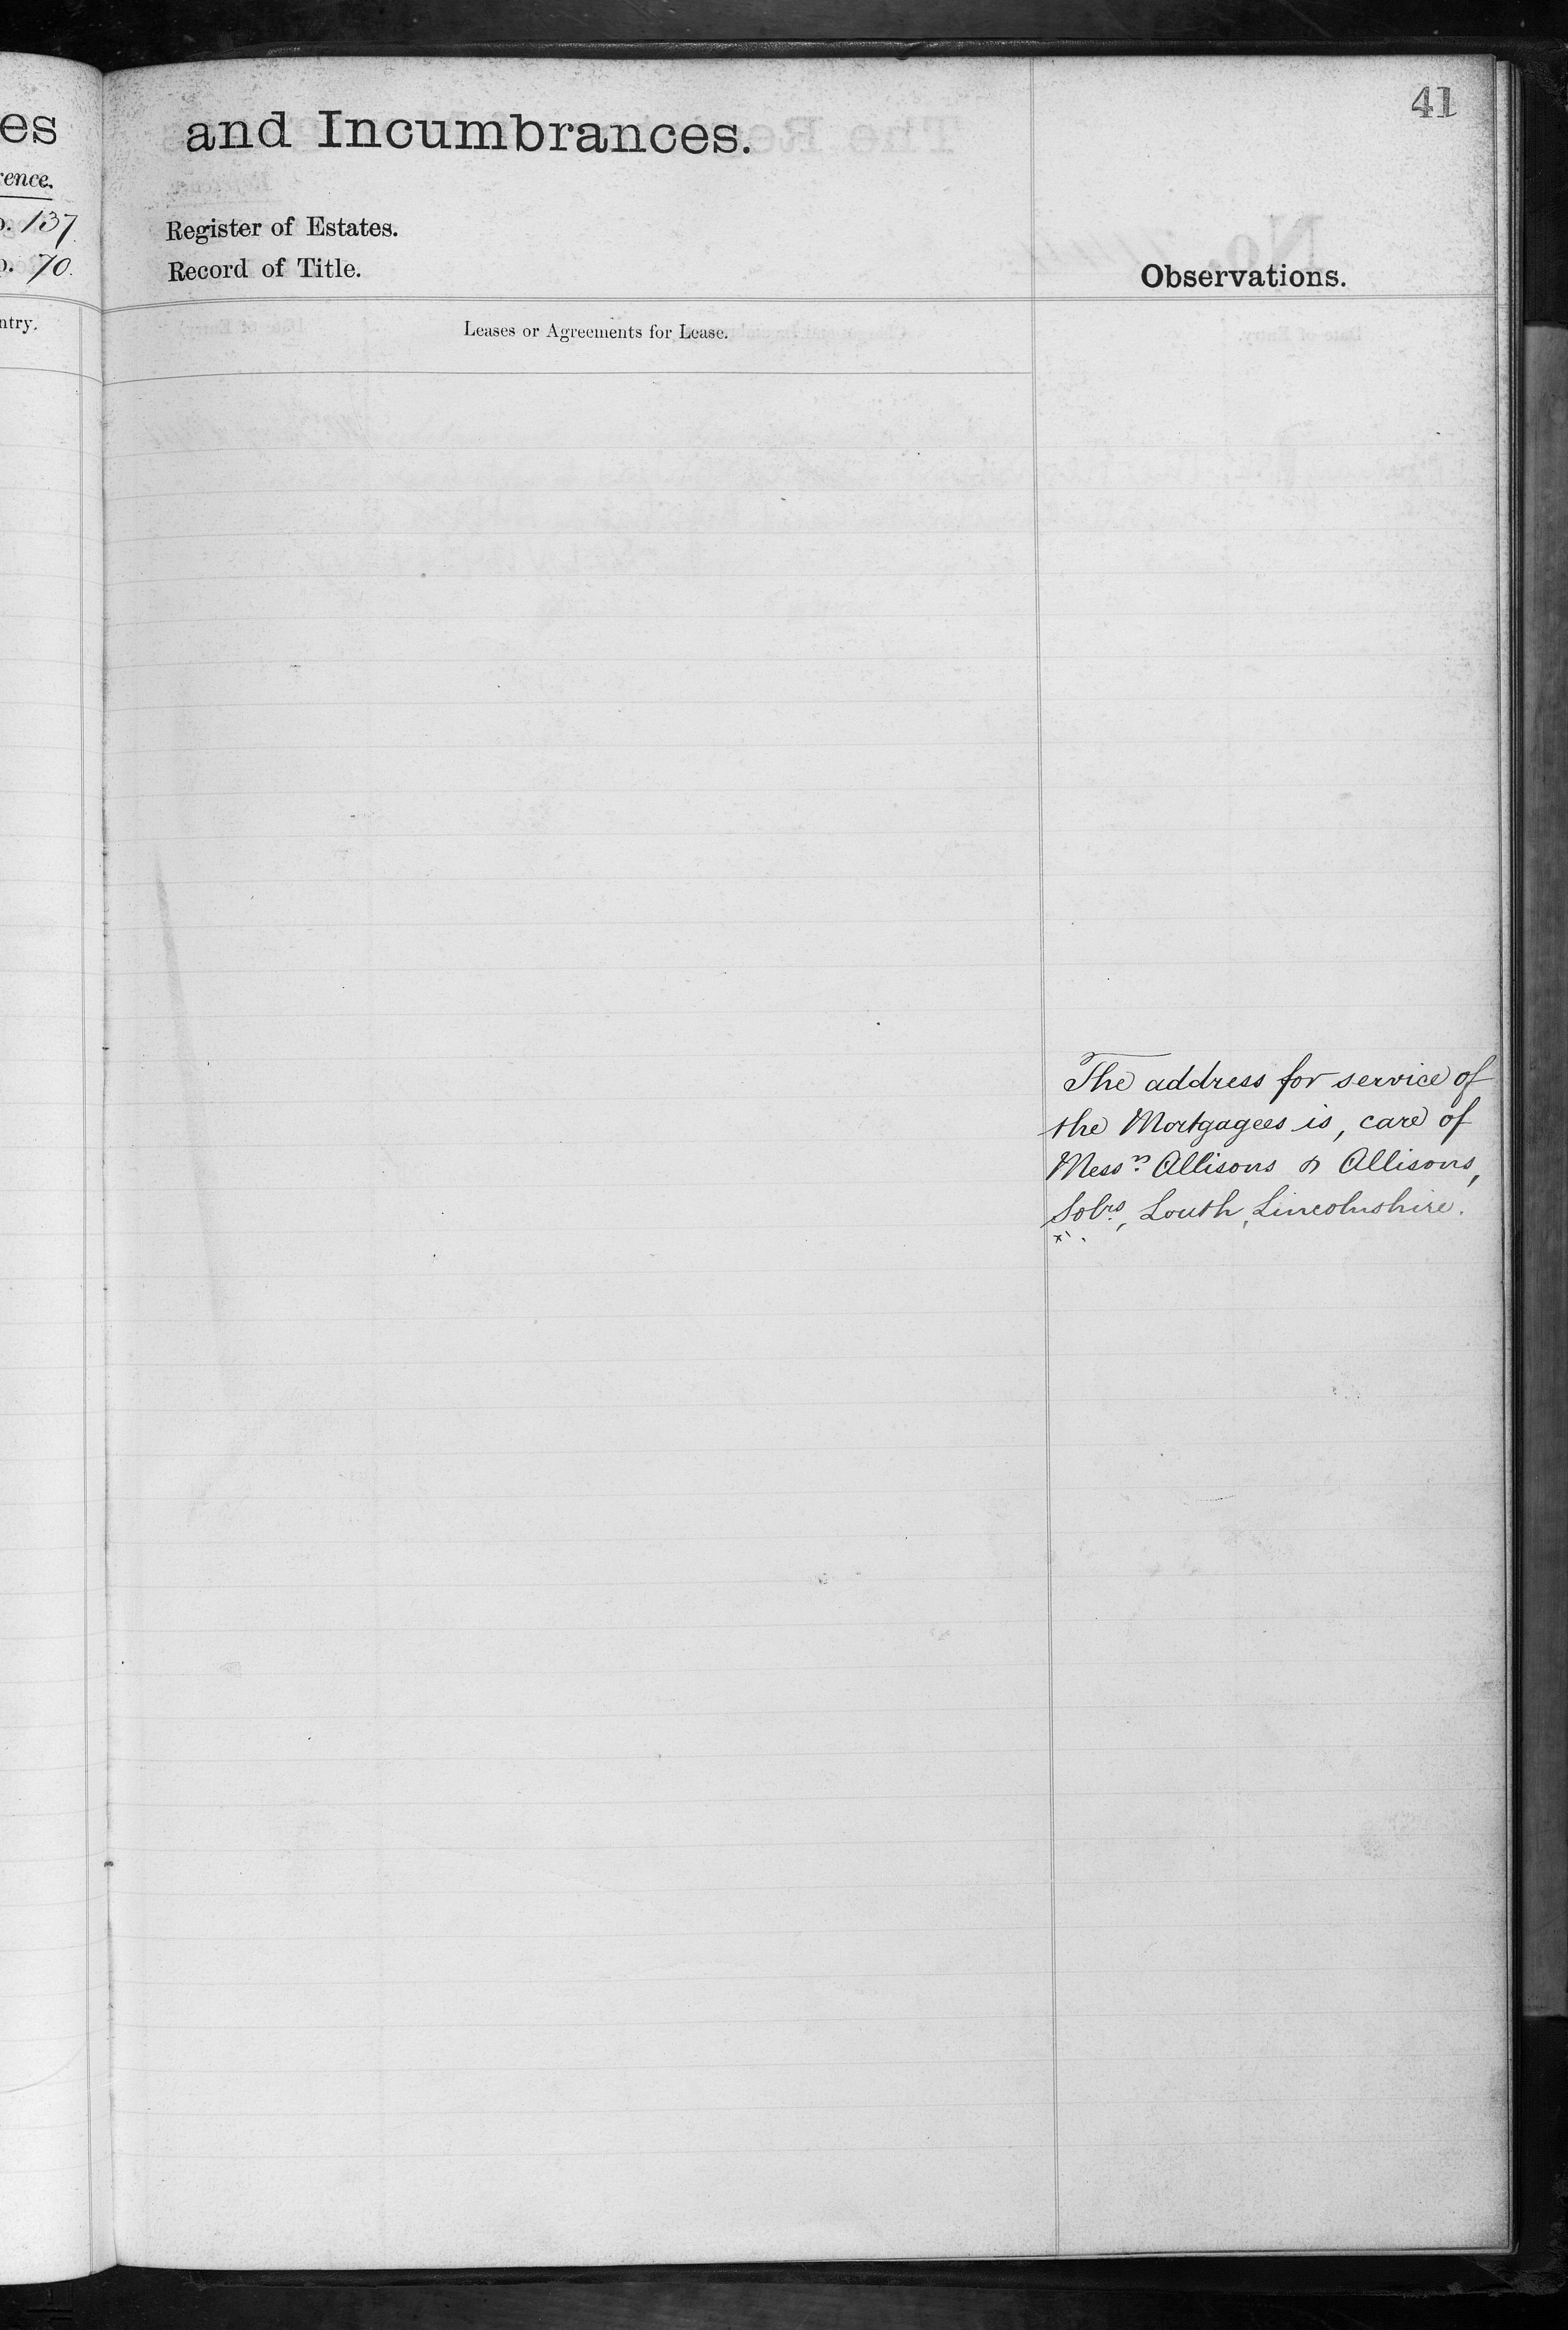 41
es and Incumbrances.
rence.
o. 137. Register of Estates.
o. 70. Record of Title.
Observations.
ntry.
Leases or Agreements for Lease.
The address for service of
the Mortgagees is, care of
Messrs. Allisons & Allisons,
Solrs, Louth, Lincolnshire.